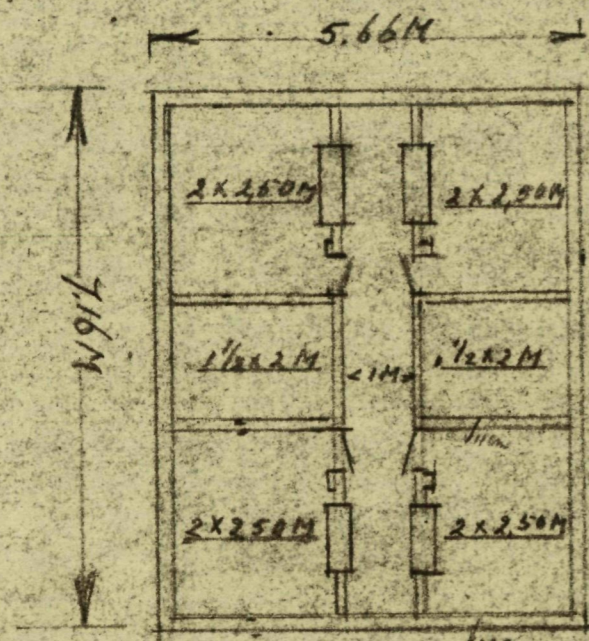 5.66M
7.16M
2 x 2,50M
2 x 2,50M
1 1/2 x 2 M
1M
1/2 x 2 M
11cm
2 x 2 50M
2 x 2,50M